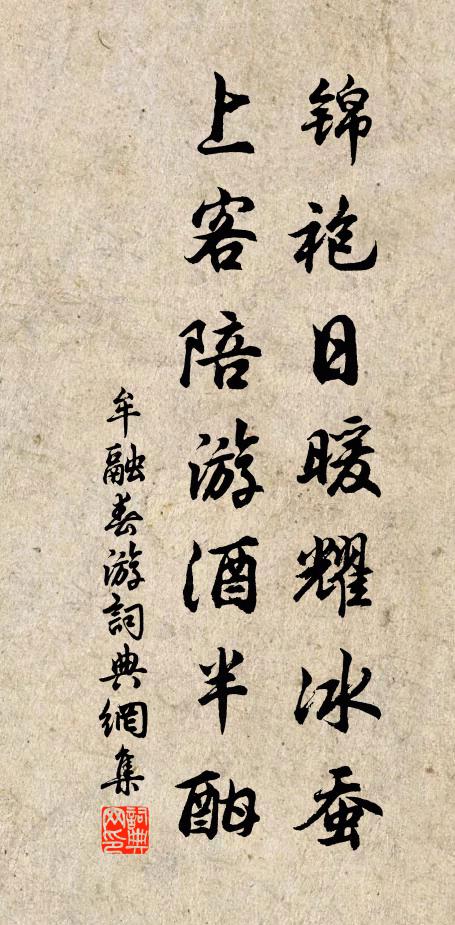 锦袍日暖耀冰蚕
上客陪游酒半酣
牟融春游詞典網集
詞典网印